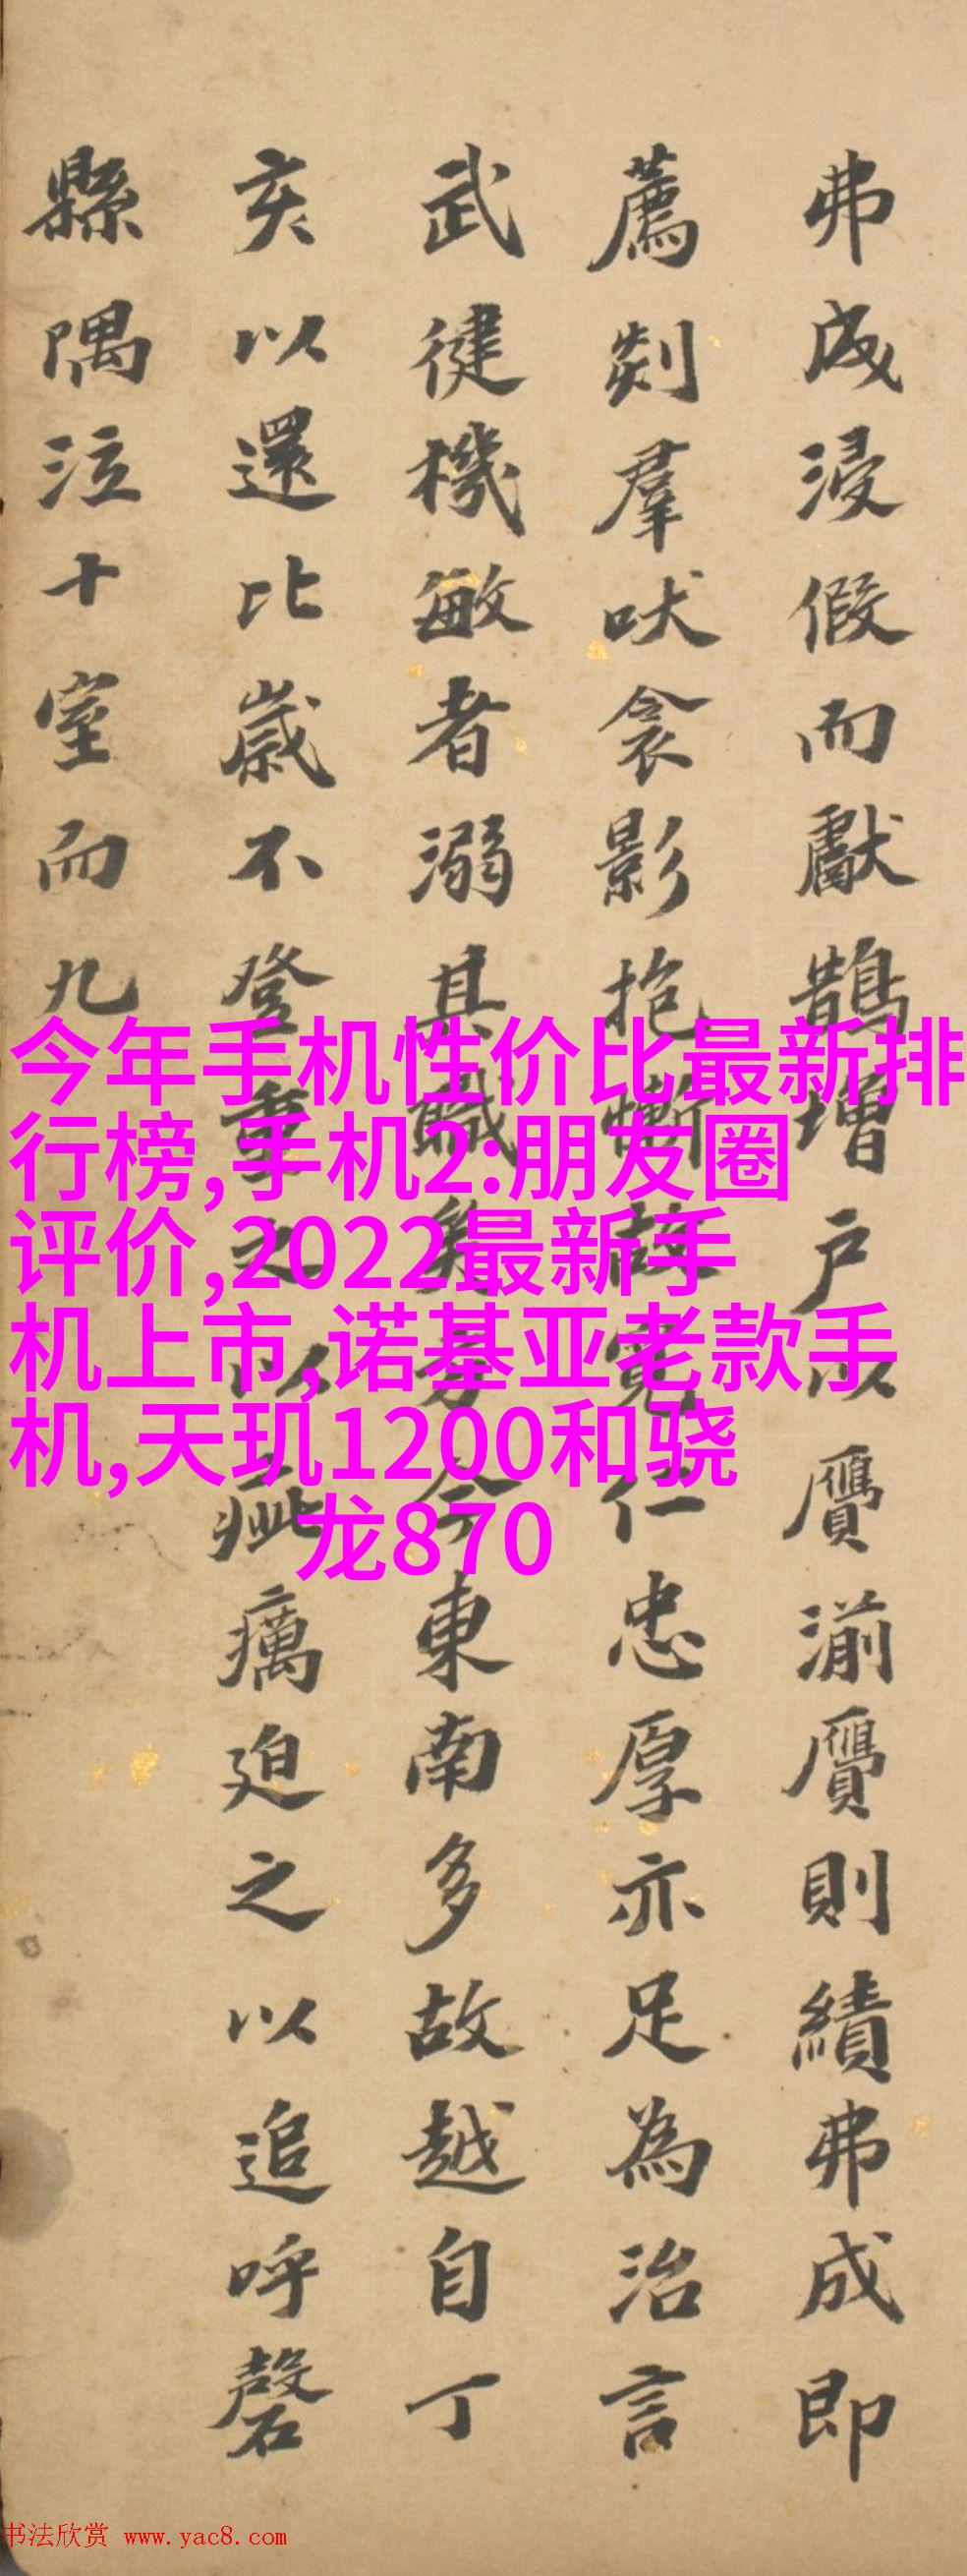 弗成浸假而獻鵲增戶以贋湔贋則績弗成即
薦剡羣吠衾影抱慚故寬仁忠厚亦足為治言
武健機敏者溺其職矣方今東南多故越自丁
亥以還比歲不登重之以疵癘迫之以追呼磬
縣隅泣十室而九
今年手机性价比最新排
行榜,手机2:朋友圈
评价,2022最新手
机上市,诺基亚老款手
机,天玑1200和骁
龙870
书法欣赏 www.yac8.com